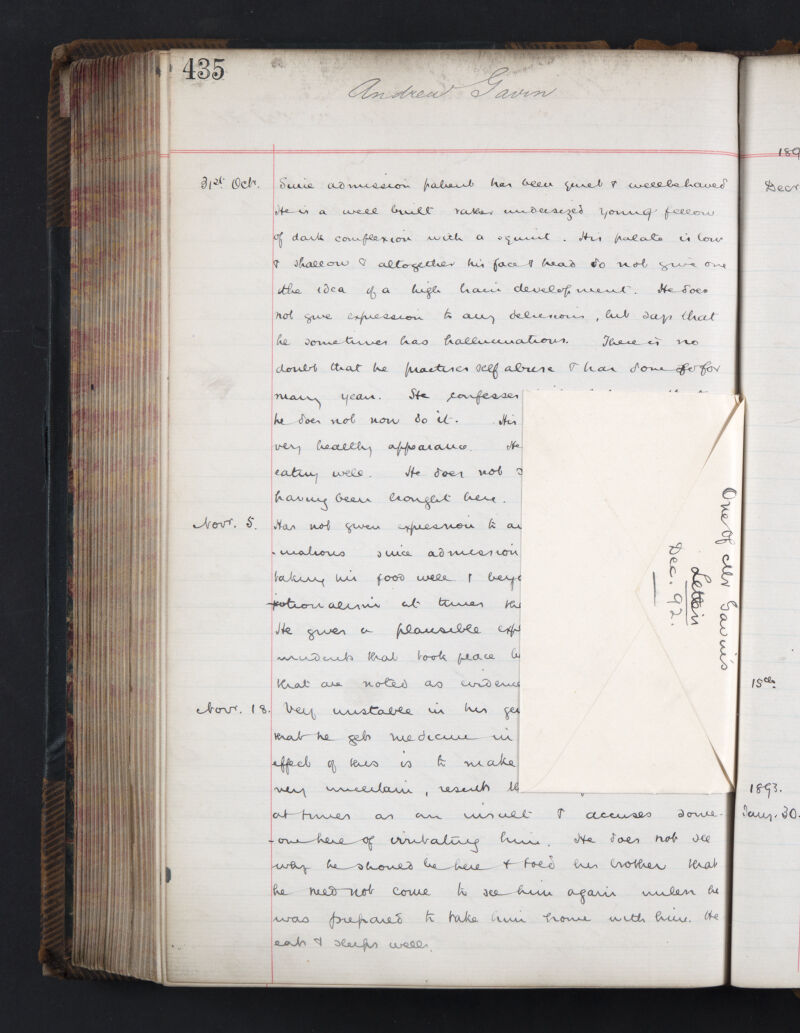 435
Andrew Gavin
31st Octr. Since admission patient has been quiet & wellbehaved
He is a well built rather undersized young fellow
of dark complexion with a squint. His palate is low
& shallow & altogether his face & head do not give one
the idea of a high brain development. He does
not give expression to any delusions, but says that
he sometimes has hallucinations. There is no
doubt that he practises self abuse & has done so for
many years. He confesses
he does not now do it. His
very healthy appearance. He
eating well. He does not
having been brought here.
Novr. 5. Has not given expression to
-inations since admission
taking his food well & bey
at times
He gives a plausible exp
incidents that took place
that are noted as evidence
Novr. 18. Very unstable in his
that he gets medicine in
effect of this is to make
very uncertain, resents
at times as an insult & accuses some-
-one here of irritating him. He does not see
why he should be here & told his brother that
he need not come to see him again unless he
was prepared to take him home with him. He
eats & sleeps well.
One of Mr Gavin's
Letters
Dec. 92.
189
Decr
15th
1893.
Jany. 30.